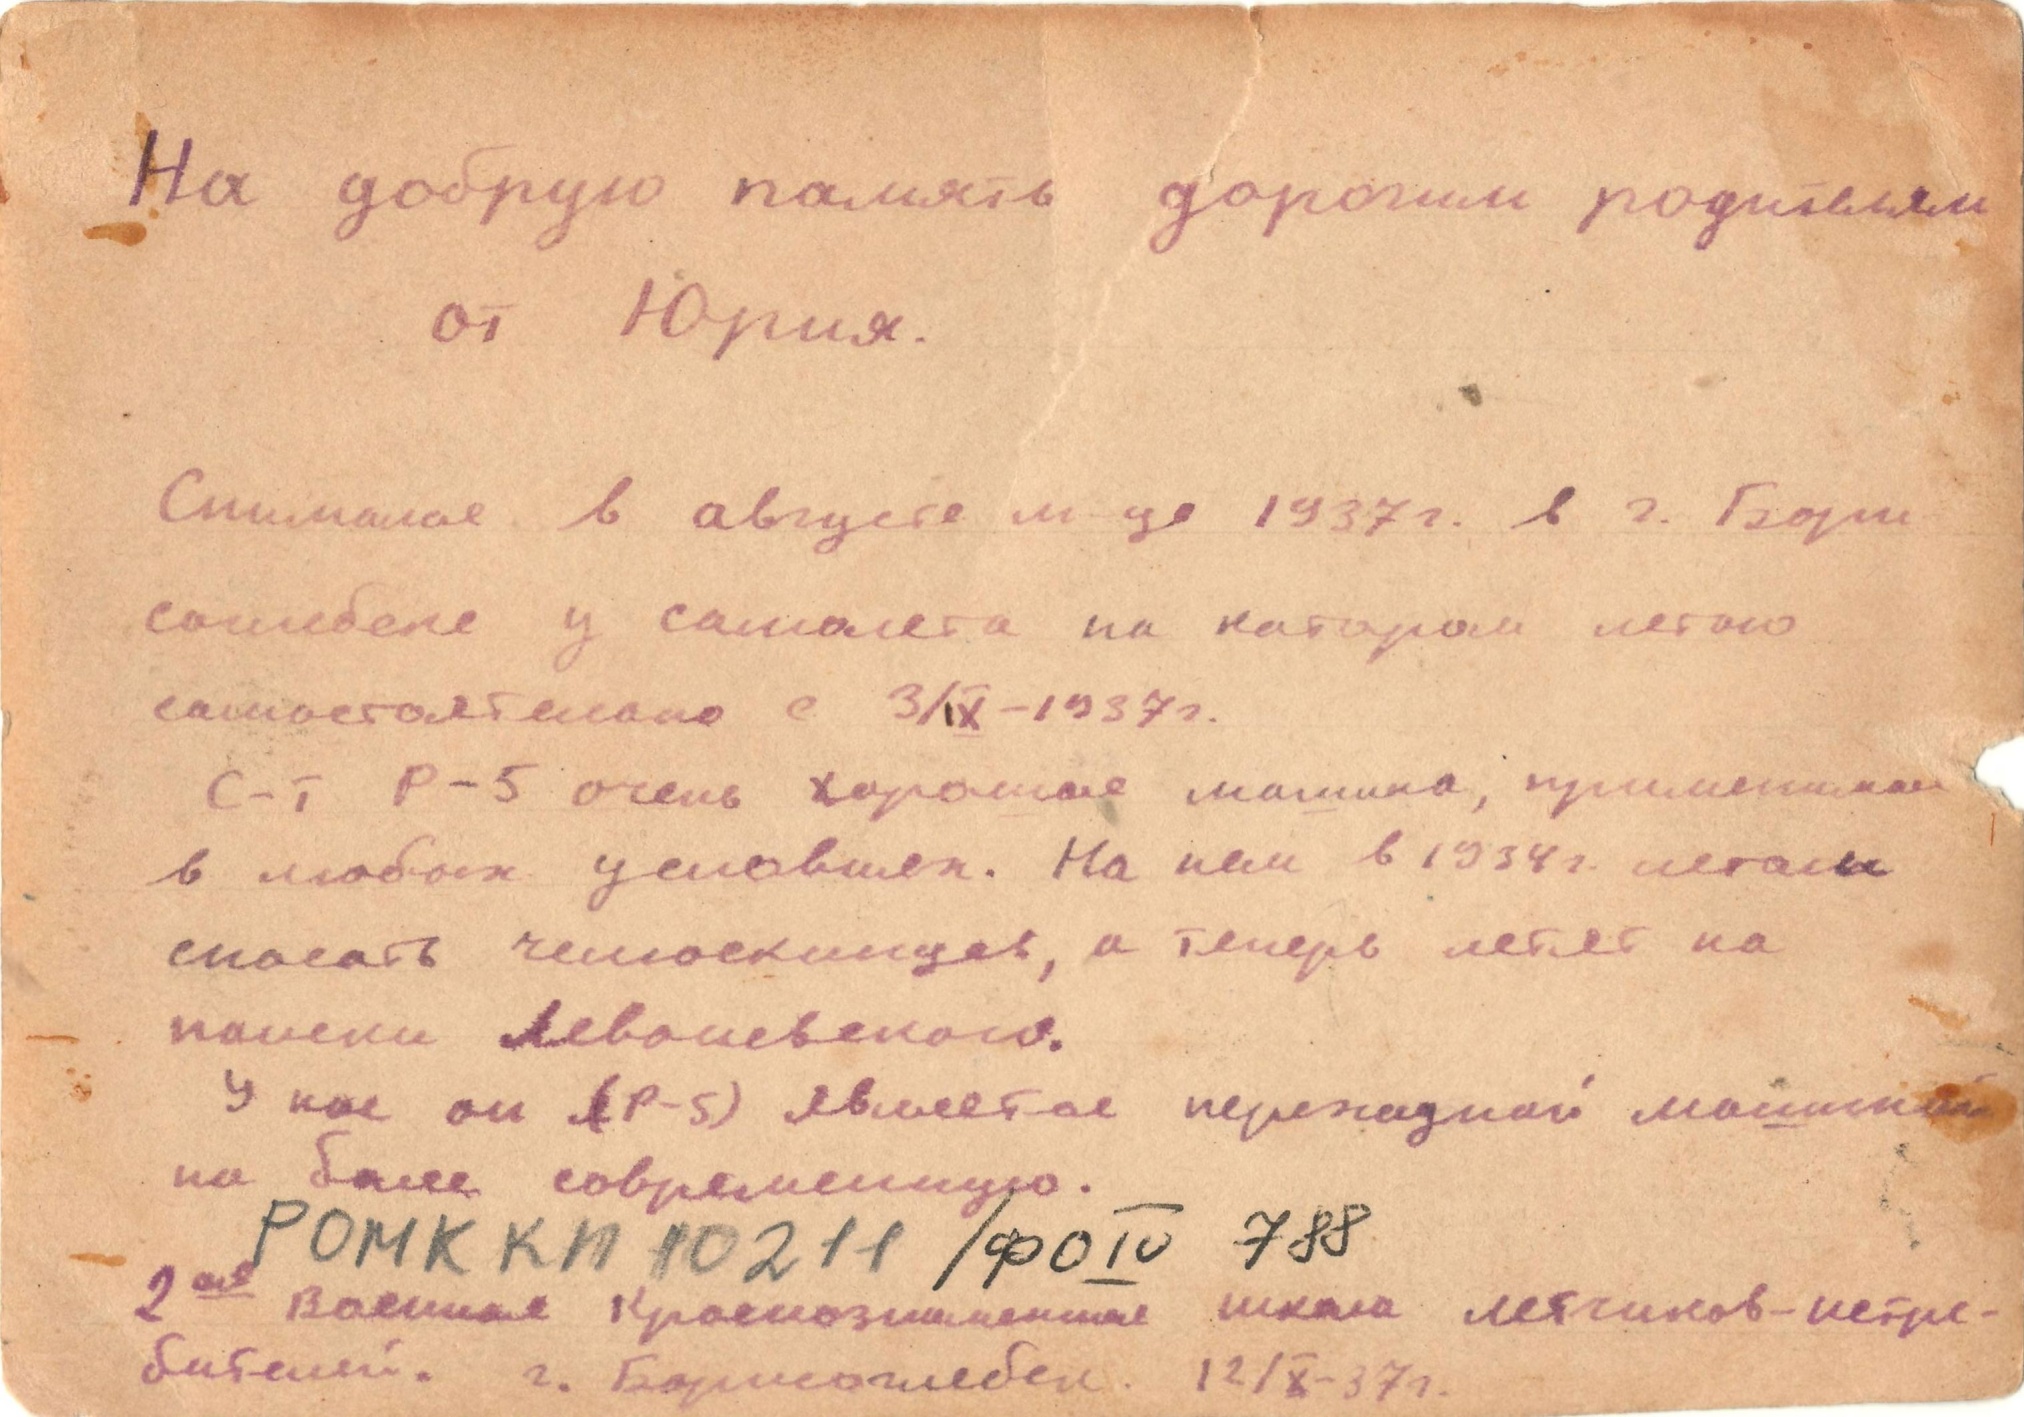 На добрую память дорогим родителям
от Юрия.
Снимался в августе м-це 1937г. в г. Бори
соглебске у самолета на котором летаю
самостоятельно с 3/IX-1937г.
С-т Р-5 очень хорошая машина, применимая
в любых условиях. На нем в 1934г. летали
спасать челюскинцев, а теперь летят на
поиски Леваневского.
У нас он (Р-5) является переходной машиной
на более современную.
РОМК КП 10211 /ФОIV 788
2ая Военная Краснознаменная школа летчиков-истре-
бителей. г. Борисоглебск. 12/X-37г.